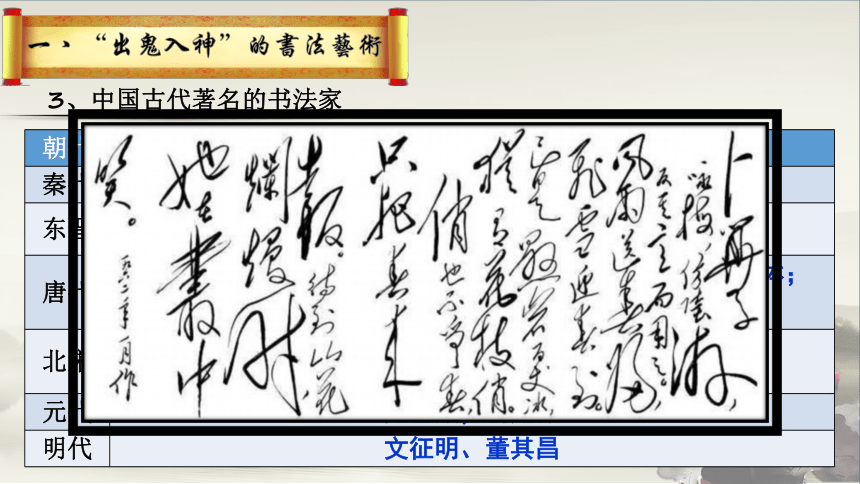 一、“出鬼入神”的書法藝術
3、中国古代著名的书法家
朝
秦
东
唐
北
元
明代
文征明、董其昌
卜算子
咏梅，仿陸游，
反其意而用之。
风雨送春归，
飛雪迎春到。
已是懸岩百丈冰，
犹有花枝俏。
俏也不争春，
只把春来
報。待到山花
爛熳时
她在叢中
笑。一九六二年一月作